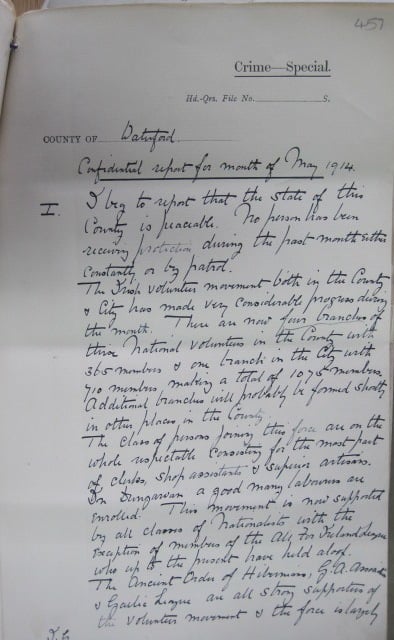 457
Crime—Special.
Hd.-Qrs. File No. S.
COUNTY OF Waterford.
Confidential report for month of May 1914.
I. I beg to report that the state of this
County is peaceable. No person has been
receiving protection during the past month either
constantly or by patrol.
The Irish Volunteer movement both in the County
& City has made very considerable progress during
the month. There are now four branches of
these National Volunteers in the County with
365 members & one branch in the City with
710 members, making a total of 1075 members.
Additional branches will probably be formed shortly
in other places in the County.
The class of persons joining this force are on the
whole respectable consisting for the most part
of clerks, shop assistants & superior artisans.
In Dungarvan a good many labourers are
enrolled. This movement is now supported
by all classes of Nationalists with the
exception of members of the All For Ireland League
who up to the present have held aloof.
The Ancient Order of Hibernians, G.A. Association
& Gaelic League are all strong supporters of
the Volunteer movement & the force is largely